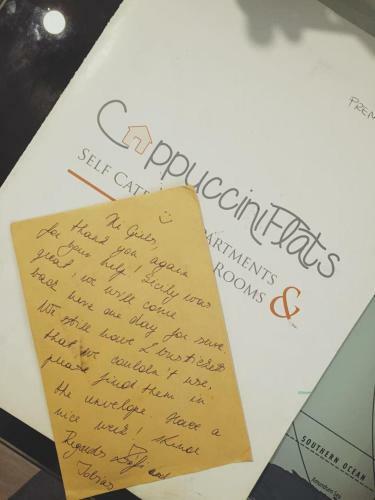 PREM
CappucciniFlats
SELF CATE PARTMENTS
ROOMS &
Hi Girls,
thank you again
for your help! Sicily was
great, we will come
back here one day for sure.
We still have 2 bustickets
that we couldn't use,
please find them in
the envelope. Have a
nice week!
Regards and
Tobias
SOUTHERN OCEAN